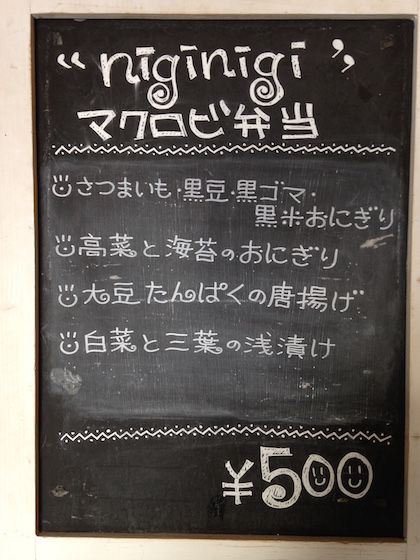 “niginigi”
マクロビ弁当
さつまいも・黒豆・黒ゴマ・
黒米おにぎり
高菜と海苔のおにぎり
大豆たんぱくの唐揚げ
白菜と三葉の浅漬け
¥500